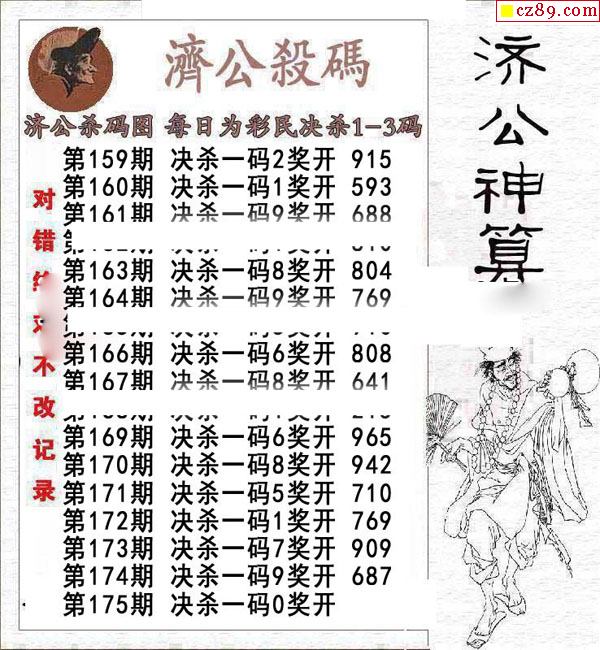 cz89.com
濟公殺碼
济公杀码图 每日为彩民决杀1-3码
第159期 决杀一码2奖开 915
第160期 决杀一码1奖开 593
第161期 决杀一码9奖开 688
第163期 决杀一码8奖开 804
第164期 决杀一码9奖开 769
第166期 决杀一码6奖开 808
第167期 决杀一码8奖开 641
第169期 决杀一码6奖开 965
第170期 决杀一码8奖开 942
第171期 决杀一码5奖开 710
第172期 决杀一码1奖开 769
第173期 决杀一码7奖开 909
第174期 决杀一码9奖开 687
第175期 决杀一码0奖开
对错不改记录
济公神算